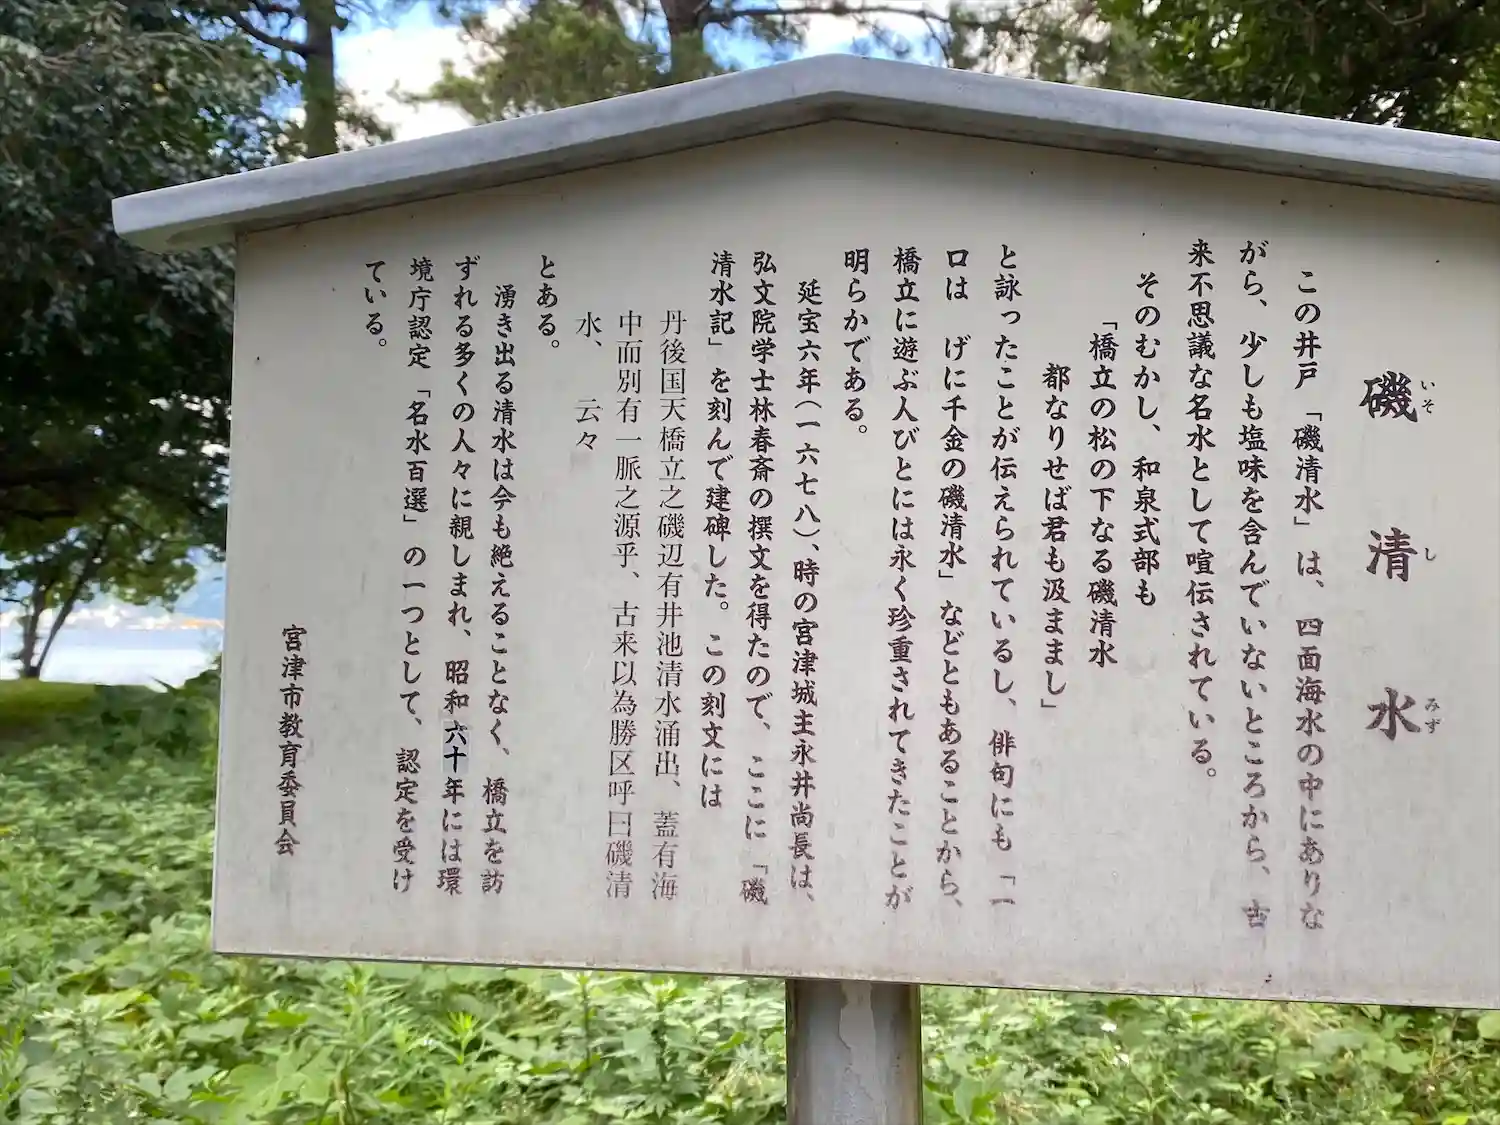 磯清水
いそ
し
みず
この井戸「磯清水」は、四面海水の中にありな
がら、少しも塩味を含んでいないところから、古
来不思議な名水として喧伝されている。
そのむかし、和泉式部も
「橋立の松の下なる磯清水
都なりせば君も汲ままし」
と詠ったことが伝えられているし、俳句にも「一
口は　げに千金の磯清水」などともあることから、
橋立に遊ぶ人びとには永く珍重されてきたことが
明らかである。
延宝六年(一六七八)、時の宮津城主永井尚長は、
弘文院学士林春斎の撰文を得たので、ここに「磯
清水記」を刻んで建碑した。この刻文には
丹後国天橋立之磯辺有井池清水涌出、蓋有海
中而別有一脈之源乎、古来以為勝区呼曰磯清
水、　云々
とある。
湧き出る清水は今も絶えることなく、橋立を訪
ずれる多くの人々に親しまれ、昭和六十年には環
境庁認定「名水百選」の一つとして、認定を受け
ている。
宮津市教育委員会